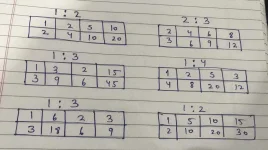 1 : 2
1 2 5 10
2 4 10 20
2 : 3
2 4 6 8
3 6 9 12
1 : 3
1 3 2 15
3 9 6 45
1 : 4
1 2 5 3
4 8 20 12
1 : 3
1 6 2 3
3 18 6 9
1 : 2
1 5 10 15
2 10 20 30